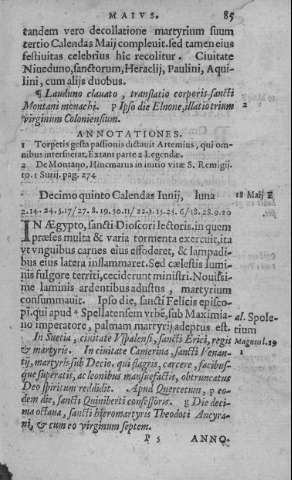 MAIVS. 85
tandem vero decollatione martyrium suum
tertio Calendas Maij compleuit. sed tamen eius
festiuitas celebrius hic recolitur. Ciuitate
Niueduno, sanctorum, Heraclij, Paulini, Aqui
lini, cum alijs duobus.
¶ Lauduno clauato, translatio corporis sancti
Montani monachi. p Ipso die Elnone, illatio trium
virginum Coloniensium. 2
ANNOTATIONES.
1 Torpetis gesta passionis dictauit Artemius, qui om-
nibus interfuerat, Extant parte 2 Legendæ.
2 De Montano, Hincmarus in initio vitæ S. Remigij
to. 1 Surij. pag. 274
Decimo quinto Calendas Iunij, luna 18 Maij E
2. 14. 24. 5. 17/ 27. 8. 19. 30. 11/ 22. 3. 15. 25. 6/ 18. 28. 9. 20
IN Ægypto, sancti Dioscori lectoris. in quem
præses multa & varia tormenta exercuit, ita
vt vnguibus carnes eius effoderet, & lampadi-
bus eius latera inflammaret. Sed cælestis lumi
nis fulgore territi, ceciderunt ministri. Nouissi-
me laminis ardentibus adustus, martyrium
consummauit. Ipso die, sancti Felicis episco-
pi. qui apud Spellatensem vrbẽ, sub Maximia- al. Spole-
no imperatore, palmam martyrij adeptus est. tium
In Suetia, ciuitate Vpsalensi, sancti Erici, regis Magnus l. 19
& martyris. In ciuitate Camerina, sancti Venan- 1
tij, martyris. sub Decio. qui flagris, carcere, facibus-
que superatis, ac leonibus mansuefactis, obtruncatus
Deo spiritum reddidit. Apud Quercetum, p eo-
dem die, sancti Quiniberti confessoris. g Die deci-
ma octaua, sancti hieromartyris Theodoti Ancyra-
ni, & cum eo virginum septem.
P 5 ANNO-